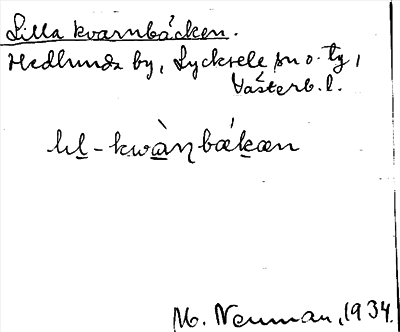 Lilla kvarnbäcken.
Hedlunda by, Lycksele sn o. tg,
Västerb. l.
lil-kwàɳbækæn
M. Neuman, 1934.